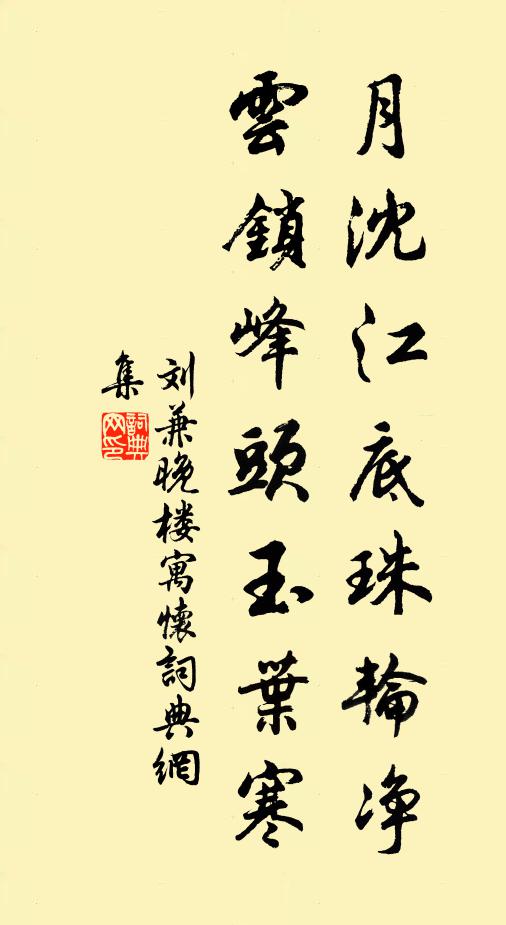 月沈江底珠輪净
雲鎖峰頭玉葉寒
刘兼晚楼寓懷詞典網
集
詞典
网印